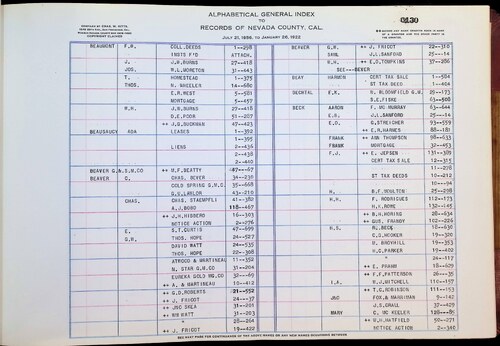 ALPHABETICAL GENERAL INDEX
TO
RECORDS OF NEVADA COUNTY, CAL.
JULY 21, 1856, TO JANUARY 26, 1922
0130
BEAUMONT F.R. COLL.DEEDS 1—298
INSTS P/D ATTACH.
J. J.W.BURNS 27—418
JOS. W.L.MORETON 31—443
T. HOMESTEAD 1—375
THOS. H. WHEELER 14—680
E.R.WEST 5—581
MORTGAGE 5—457
H.N. J.W.BURNS 27—418
D.E.POOR 51—207
++ J.S.BUCHMAN 47—423
BEAUSANCY ADA LEASES 1—392
1—395
LIENS 2—436
2—438
2—440
BEAVER G.& S.M CO ++ M.F.BEATTY 47—67
BEAVER C. CHAS. BEVER 34—230
GOLD SPRING G.M.C. 35—668
G.W.LAYLOR 43—210
CHAS. CHAS. STAEMPFLI 41—382
A.J.BOBO 118—407
++ J.H.HISBERD 16—303
NOTICE ACTION 2—076
E. S.T.CURTIS 47—699
G.R. THOS. HOPE 24—527
DAVID WATT 24—535
THOS. HOPE 22—308
ATWOOD & MARTINEAU 11—352
N. STAR G.M.CO 31—204
EUREKA GOLD MG.CO 32—69
++ A. & MARTINEAU 10—412
++ G.D.ROBERTS 21—552
++ J. FRICOT 24—117
++ JNO SHEA 31—201
++ WM WATT 31—203
" 28—264
++ J. FRICOT 19—422
BEAVER G.R. ++ J. FRICOT 22—310
SAML J.L.SANFORD 25—14
W.H. ++ E.D.TOMPKINS 37—286
SEE——BEVER
BEAY HARMON CERT TAX SALE 1—504
ST TAX DEED 1—404
BECHTAL E.K. N. BLOOMFIELD G.M. 29—173
B.E.FIRE 63—508
BECK AARON F. MC MURRAY 6—544
E.B. J.L.SANFORD 25—14
E.D. G.STREICHER 93—559
++ E.R.HARNES 88—181
FRANK ++ ANN THOMPSON 98—633
FRANK MORTGAGE 32—453
F.J. ++ E. JEPSEN 131—389
CERT TAX SALE 12—315
11—278
ST TAX DEEDS 10—212
10—214
H. B.F.MOULTON 25—298
H.H. F. RODRIGUES 112—173
H.K.ROWE 132—145
++ B.H.MORINE 28—634
++ GUS. FRANDY 102—026
H.S. WM.BECK 10—636
E.D.HOOKER 19—308
W. BROYHILL 19—353
H.C.PARKER 19—402
" 24—117
++ E. FRAHM 18—629
++ F.F.PATTERSON 26—35
I.A. W.J.MITCHELL 110—157
++ T.G.ROBINSON 111—153
JNO FOX,& HARRIMAN 9—142
J.S.GRALL 37—429
MARY C. MC KEELER 128—85
++ W.H.HATFIELD 50—271
NOTICE ACTION 2—340